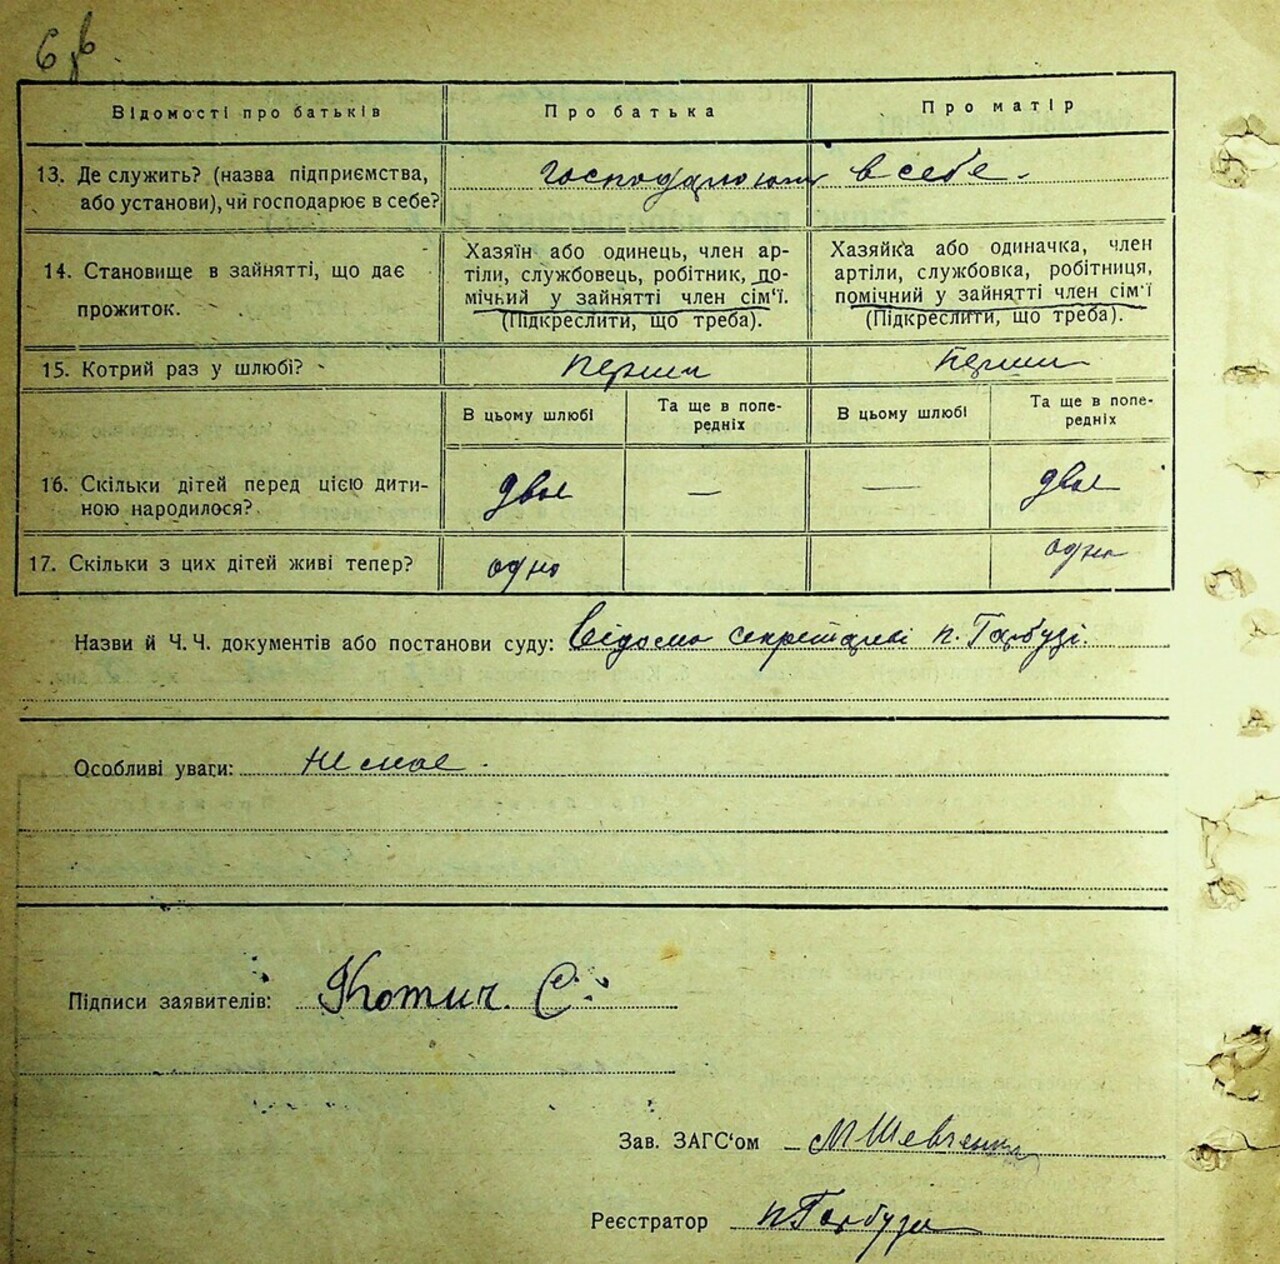 6
Відомості про батьків Про батька Про матір
13. Де служить? (назва підприємства, або установи), чи господарює в себе? господарюют в себе.
14. Становище в зайнятті, що дає прожиток.
Хазяїн або одинець, член ар-
тіли, службовець, робітник, по-
мічний у зайнятті член сім'ї.
(Підкреслити, що треба).
Хазяйка або одиначка, член
артіли, службовка, робітниця,
помічний у зайнятті член сім'ї
(Підкреслити, що треба).
15. Котрий раз у шлюбі? перший перший
В цьому шлюбі Та ще в попе-
редніх В цьому шлюбі Та ще в попе-
редніх
16. Скільки дітей перед цією дити-
ною народилося? двое — — двое
17. Скільки з цих дітей живі тепер? одно одно
Назви й Ч. Ч. документів або постанови суду: Відомо секретарові п. Гарбузі.
Особливі уваги: Не має.
Підписи заявителів: Котич С.
Зав. ЗАГС'ом М Шевченко
Реєстратор п Гарбузи